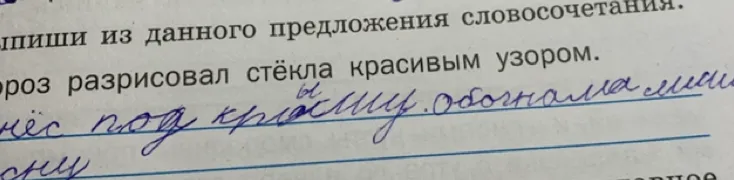 ыпиши из данного предложения словосочетания.
ороз разрисовал стёкла красивым узором.
нёс под крышу. обогнала лиш
сну